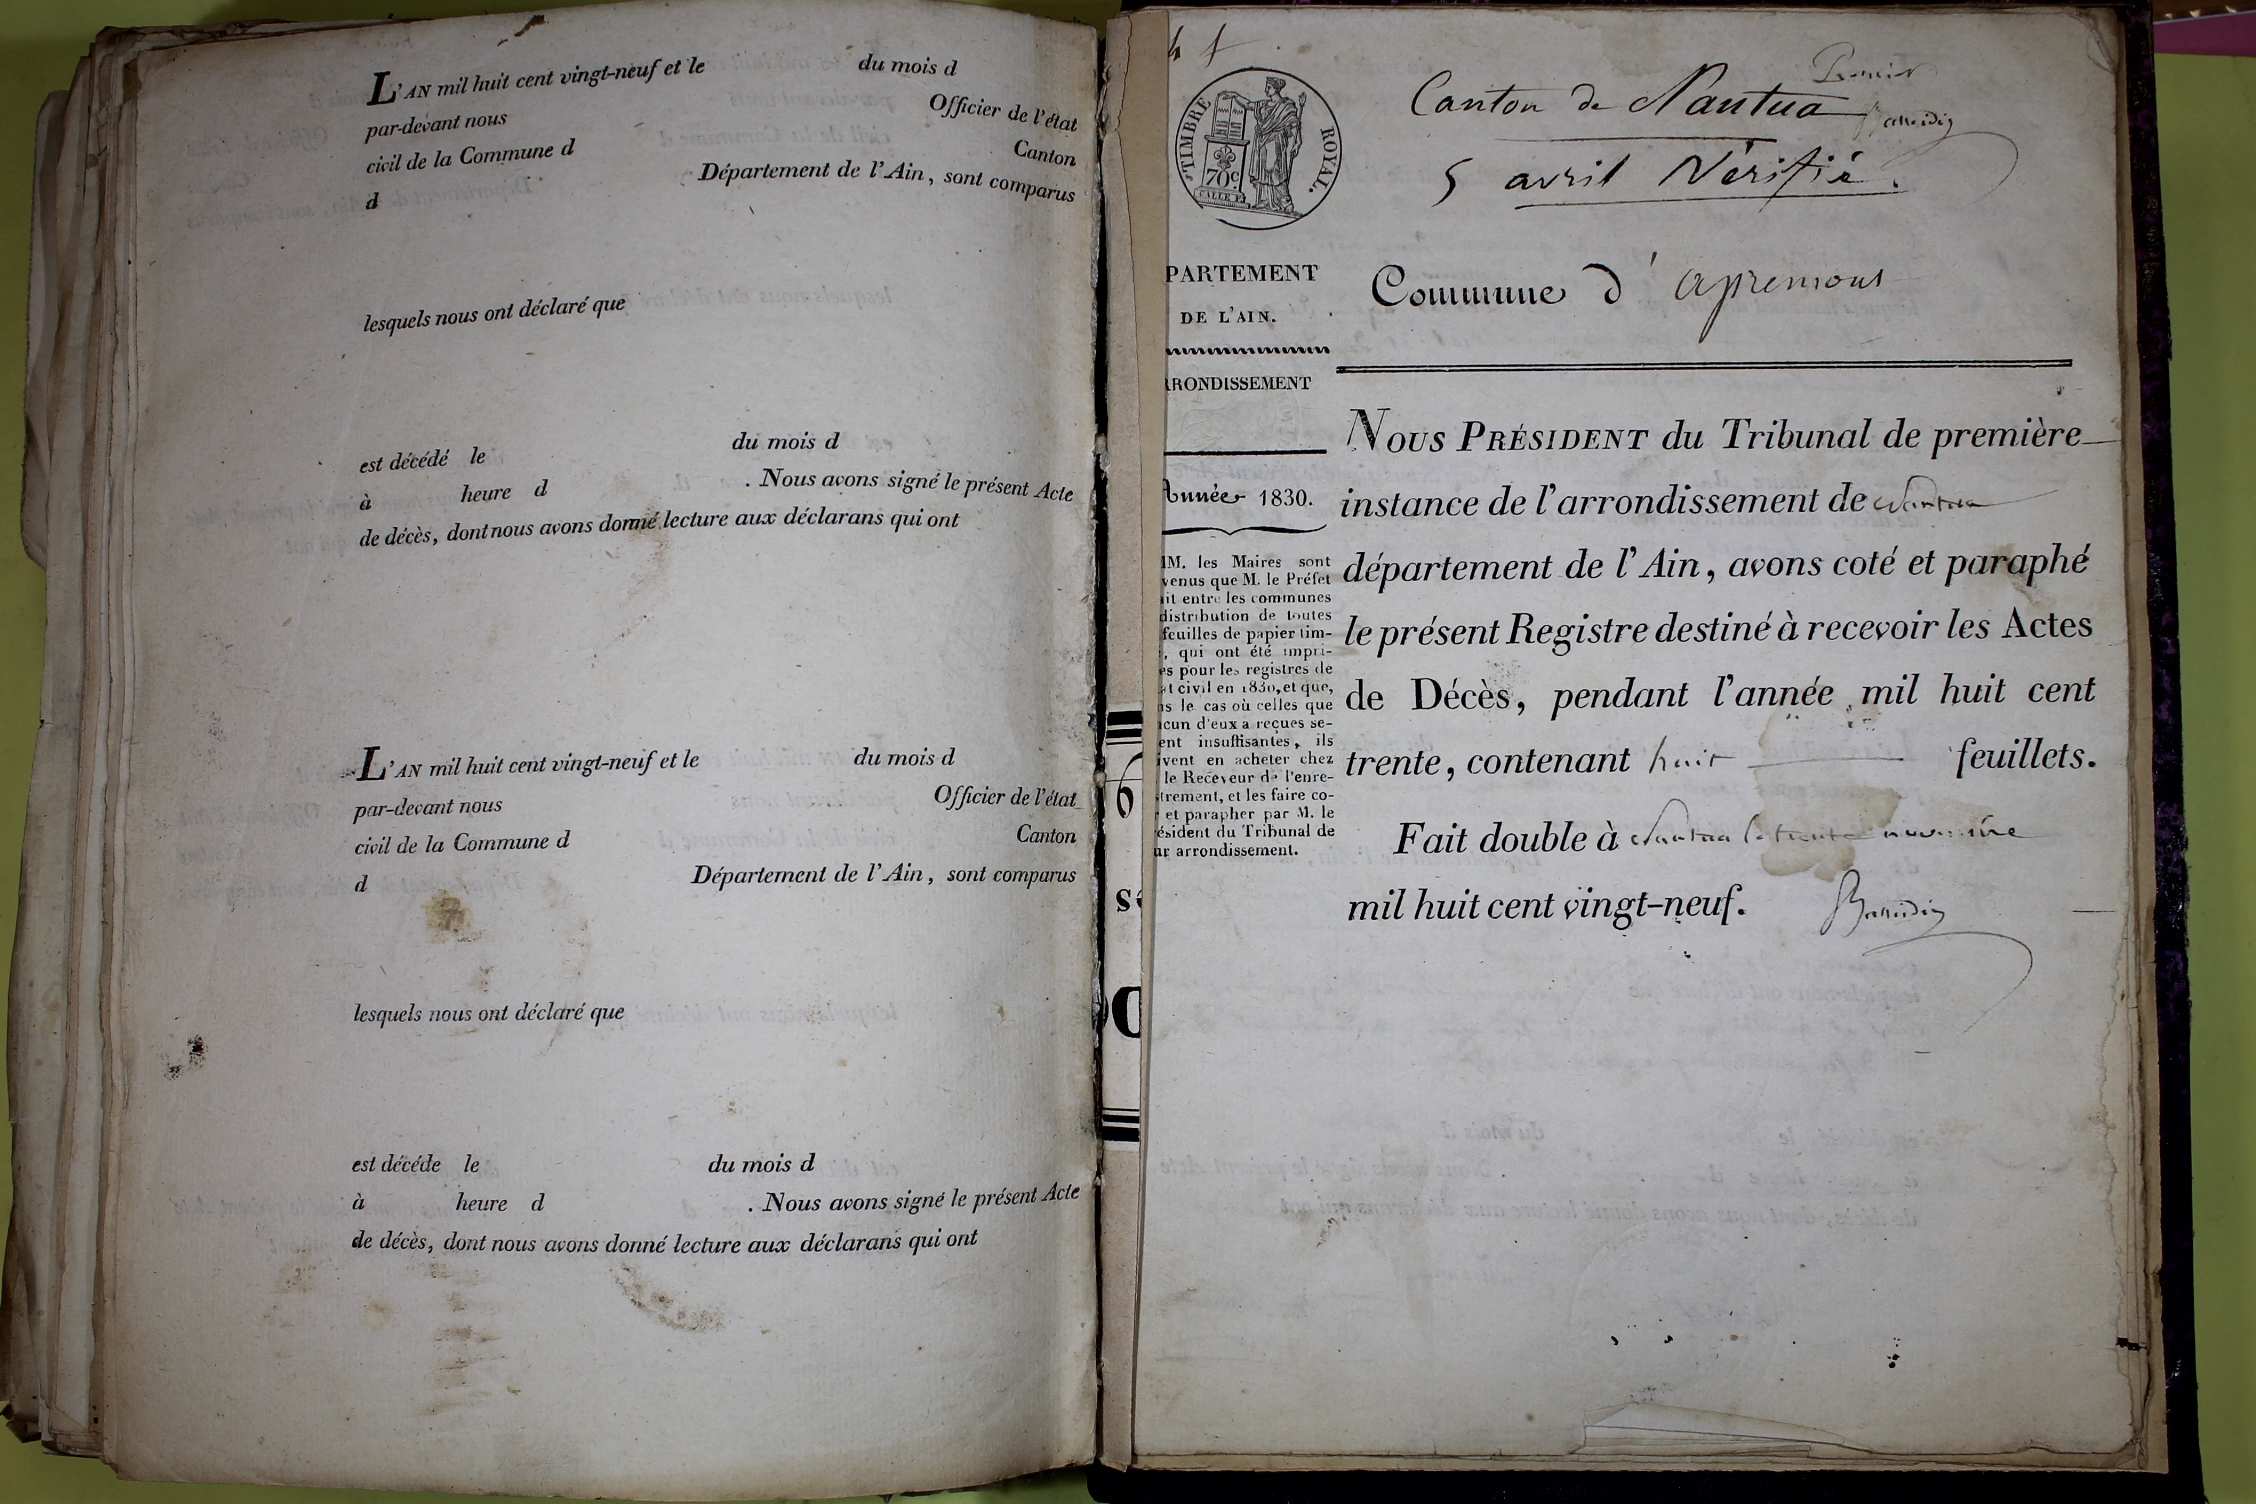 L'AN mil huit cent vingt-neuf et le du mois d
par-devant nous Officier de l'état
civil de la Commune d Canton
d Département de l'Ain, sont comparus
lesquels nous ont déclaré que
est décédé le du mois d
à heure d . Nous avons signé le présent Acte
de décès, dont nous avons donné lecture aux déclarans qui ont
L'AN mil huit cent vingt-neuf et le du mois d
par-devant nous Officier de l'état
civil de la Commune d Canton
d Département de l'Ain, sont comparus
lesquels nous ont déclaré que
est décéde le du mois d
à heure d . Nous avons signé le présent Acte
de décès, dont nous avons donné lecture aux déclarans qui ont
TIMBRE ROYAL.
70c
Premier
Canton de Nantua
5 avril Vérifié.
PARTEMENT
DE L'AIN.
RONDISSEMENT
Année 1830.
M. les Maires sont
venus que M. le Préfet
it entre les communes
distribution de toutes
feuilles de papier tim-
, qui ont été impri-
es pour les registres de
t civil en 1830, et que,
s le cas où celles que
cun d'eux a reçues se-
ent insuffisantes, ils
ivent en acheter chez
le Receveur de l'enre-
trement, et les faire co-
et parapher par M. le
ésident du Tribunal de
ur arrondissement.
Commune d' apremont
NOUS PRÉSIDENT du Tribunal de première
instance de l'arrondissement de Nantua
département de l'Ain, avons coté et paraphé
le présent Registre destiné à recevoir les Actes
de Décès, pendant l'année mil huit cent
trente, contenant huit feuillets.
Fait double à Nantua le trente novembre
mil huit cent vingt-neuf.